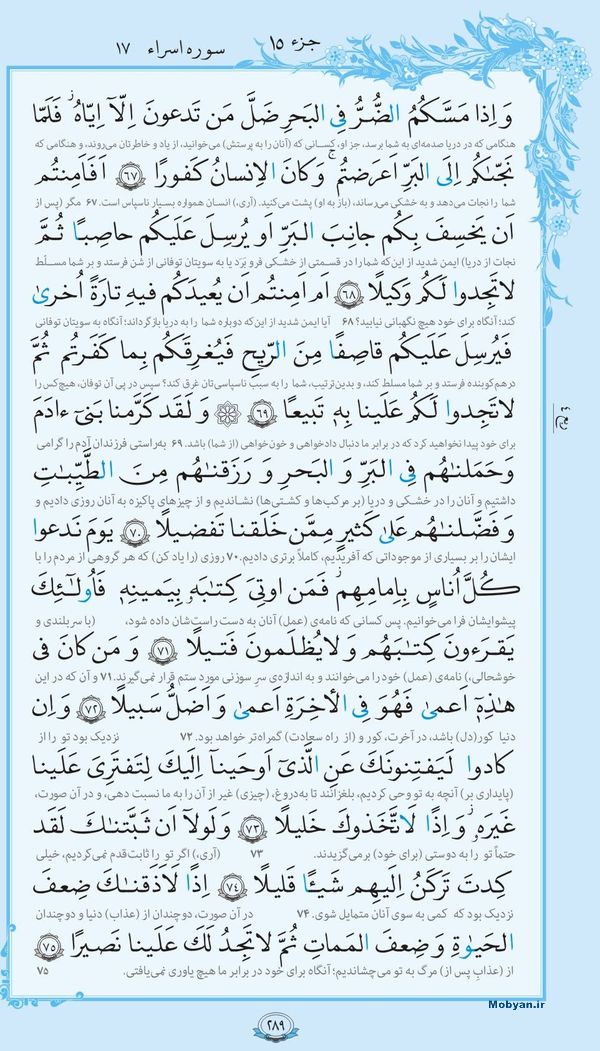 جزء ۱۵
سوره اسراء ۱۷
وَ اِذا مَسَّكُمُ الضُّرُّ فِى البَحرِ ضَلَّ مَن تَدعونَ اِلّآ اِيّاهُ ۖ فَلَمّا
هنگامی که در دریا صدمه‌ای به شما برسد، جز او، کسانی که (آنان را به پرستش) می‌خوانید، از یاد و خاطرتان می‌روند، و هنگامی که
نَجّىٰكُم اِلَى البَرِّ اَعرَضتُم ۚ وَ كانَ الاِنسانُ كَفورًا ﴿۶۷﴾ اَفَاَمِنتُم
شما را نجات می‌دهد و به خشکی می‌رساند، (باز به او) پشت می‌کنید. (آری،) انسان همواره بسیار ناسپاس است. ۶۷ مگر (پس از
اَن يَخسِفَ بِكُم جانِبَ البَرِّ اَو يُرسِلَ عَلَيكُم حاصِبًا ثُمَّ
نجات از دریا) ایمن شدید از این‌که شما را در قسمتی از خشکی فرو بَرَد یا به سویتان توفانی از شن فرستد و بر شما مسلّط
لاتَجِدوا لَكُم وَكيلًا ﴿۶۸﴾ اَم اَمِنتُم اَن يُعيدَكُم فيهِ تارَةً اُخرىٰ
کند؛ آنگاه برای خود هیچ نگهبانی نیابید؟ ۶۸ آیا ایمن شدید از این‌که دوباره شما را به دریا بازگرداند؛ آنگاه به سویتان توفانی
فَيُرسِلَ عَلَيكُم قاصِفًا مِنَ الرّيحِ فَيُغرِقَكُم بِما كَفَرتُم ثُمَّ
درهم‌کوبنده فرستد و بر شما مسلط کند، و بدین‌ترتیب، شما را به سبب ناسپاسی‌تان غرق کند؟ سپس در پی آن توفان، هیچ‌کس را
لاتَجِدوا لَكُم عَلَينا بِهٖ تَبيعًا ﴿۶۹﴾ وَ لَقَد كَرَّمنا بَنىٓ ءادَمَ
برای خود پیدا نخواهید کرد که در برابر ما دنبال دادخواهی و خون‌خواهی (از شما) باشد. ۶۹ به‌راستی فرزندان آدم را گرامی
وَ حَمَلنٰهُم فِى البَرِّ وَ البَحرِ وَ رَزَقنٰهُم مِنَ الطَّيِّبٰتِ
داشتیم و آنان را در خشکی و دریا (بر مرکب‌ها و کشتی‌ها) نشاندیم و از چیزهای پاکیزه به آنان روزی دادیم و
وَ فَضَّلنٰهُم عَلىٰ كَثيرٍ مِمَّن خَلَقنا تَفضيلًا ﴿۷۰﴾ يَومَ نَدعوا
ایشان را بر بسیاری از موجوداتی که آفریدیم، کاملاً برتری دادیم. ۷۰ روزی (را یاد کن) که هر گروهی از مردم را با
كُلَّ اُناسٍ بِاِمامِهِم ۖ فَمَن اوتِىَ كِتٰبَهٗ بِيَمينِهٖ فَاُولٰٓئِكَ
پیشوایشان فرا می‌خوانیم. پس کسانی که نامه‌ی (عمل) آنان به دست راست‌شان داده شود، (با سربلندی و
يَقرَءونَ كِتٰبَهُم وَ لايُظلَمونَ فَتيلًا ﴿۷۱﴾ وَ مَن كانَ فى
خوشحالی،) نامه‌ی (عمل) خود را می‌خوانند و به اندازه‌ی سر سوزنی مورد ستم قرار نمی‌گیرند. ۷۱ و آن که در این
هٰذِهٖٓ اَعمىٰ فَهُوَ فِى الأخِرَةِ اَعمىٰ وَ اَضَلُّ سَبيلًا ﴿۷۲﴾ وَ اِن
دنیا کور(دل) باشد، در آخرت، کور و (از راه سعادت) گمراه‌تر خواهد بود. ۷۲ نزدیک بود تو را از
كادوا لَيَفتِنونَكَ عَنِ الَّذىٓ اَوحَينآ اِلَيكَ لِتَفتَرِىَ عَلَينا
(پایداری بر) آنچه به تو وحی کردیم، بلغزانند تا به‌دروغ، (چیزی) غیر از آن را به ما نسبت دهی، و در آن صورت،
غَيرَهٗ ۖ وَ اِذًا لَاتَّخَذوكَ خَليلًا ﴿۷۳﴾ وَ لَولآ اَن ثَبَّتنٰكَ لَقَد
حتماً تو را به دوستی (برای خود) برمی‌گزیدند. ۷۳ (آری،) اگر تو را ثابت‌قدم نمی‌کردیم، خیلی
كِدتَ تَركَنُ اِلَيهِم شَيئًا قَليلًا ﴿۷۴﴾ اِذًا لَاَذَقنٰكَ ضِعفَ
نزدیک بود که کمی به سوی آنان متمایل شوی. ۷۴ در آن صورت، دوچندان از (عذاب) دنیا و دوچندان
الحَيوٰةِ وَ ضِعفَ المَماتِ ثُمَّ لاتَجِدُ لَكَ عَلَينا نَصيرًا ﴿۷۵﴾
از (عذاب پس از) مرگ به تو می‌چشاندیم؛ آنگاه برای خود در برابر ما هیچ یاوری نمی‌یافتی. ۷۵
Mobyan.ir
۲۸۹